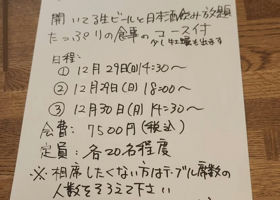 開いてる生ビールと日本酒飲み放題
たっぷりの食事のコース付
少し牡蠣も出ます
日程:
① 12月29日(日)14:30〜
② 12月29日(日) 18:00〜
③ 12月30日(月)14:30〜
会費: 7500円(税込)
定員: 各20名程度
※ 相席したくない方はテーブル席数の
人数をそろえて下さい